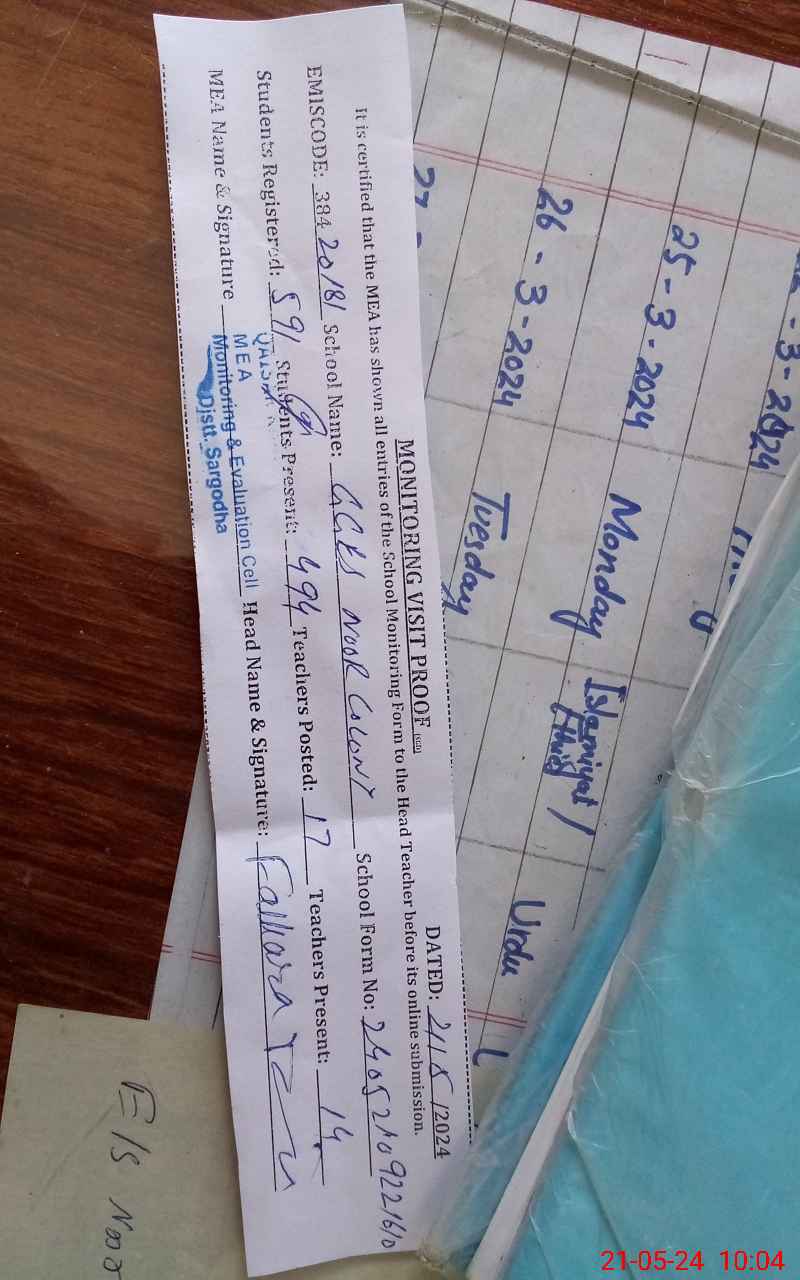 MONITORING VISIT PROOF (SED)
DATED: 21/5/2024
It is certified that the MEA has shown all entries of the School Monitoring Form to the Head Teacher before its online submission.
EMISCODE: 38420181 School Name: GGES NOOR COLONY School Form No:
Students Registered: 591 Students Present: 494 Teachers Posted: 17 Teachers Present: 14
MEA Name & Signature Head Name & Signature:
MEA
Monitoring & Evaluation Cell
Distt. Sargodha
3-2024
25-3-2024 Monday Islamiyat /
26-3-2024 Tuesday Urdu
27-
E/S Noor
21-05-24 10:04